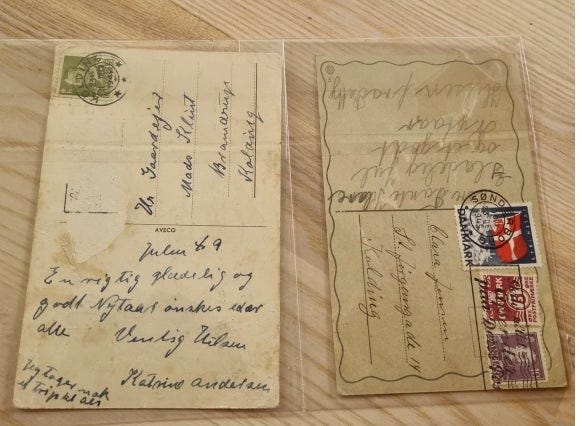 Hr Gaardejer
Mads Klint
Bramdrup
Kolding
AVECO
Julen 49
En rigtig glædelig og
godt Nytaar ønskes eder
alle Venlig Hilsen
Katrine Andersen
Jeg tager nok
Glædelig Jul
og godt
Nytaar
Hilsen
Clara Jensen
St. Jørgensgade 14
Kolding
SØNDERBORG
DANMARK